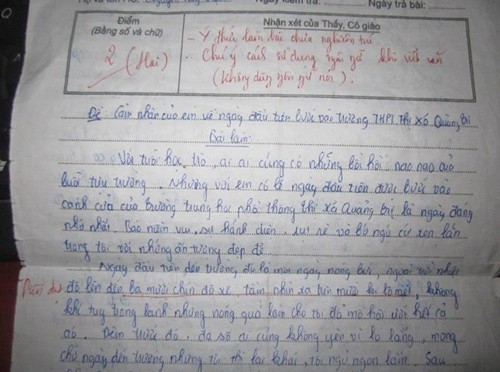 Ngày kiểm tra: Ngày trả bài:
Điểm
(Bằng số và chữ)
Nhận xét của Thầy, Cô giáo
2 (Hai)
- Ý thức làm bài chưa nghiêm túc
- Chú ý cách sử dụng ngôn ngữ khi viết văn
(không dùng ngôn ngữ nói).
Đề: Cảm nhận của em về ngày đầu tiên bước vào trường THPT Thị Xã Quảng Trị
Bài làm:
Với tuổi học trò, ai ai cũng có những bồi hồi nao nao của
buổi tựu trường. Nhưng với em có lẽ ngày đầu tiên được bước vào
cánh cửa của trường trung học phổ thông thị xã Quảng trị là ngày đáng
nhớ nhất. Bao niềm vui, sự hãnh diện, rụt rè và bỡ ngỡ cứ xen lẫn
trong tôi với những ấn tượng đẹp đẽ.
Ngày đầu tiên đến trường, đó là một ngày nóng bức, ngoài trời nhiệt
độ lên đến ba mươi chín độ xê, tầm nhìn xa trên mười ki lô mét, không
khí tuy trong lành nhưng nóng quá làm cho tôi đổ mồ hôi ướt hết cả
áo. Đêm trước đó, đa số ai cũng không yên vì lo lắng, mong
chờ ngày đến trường nhưng tôi thì lại khác, tôi ngủ ngon lắm. Sau